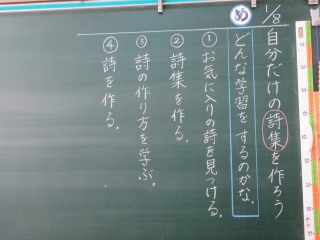 1/8 自分だけの詩集を作ろう
め
どんな学習をするのかな。
①お気に入りの詩を見つける。
②詩集を作る。
③詩の作り方を学ぶ。
④詩を作る。